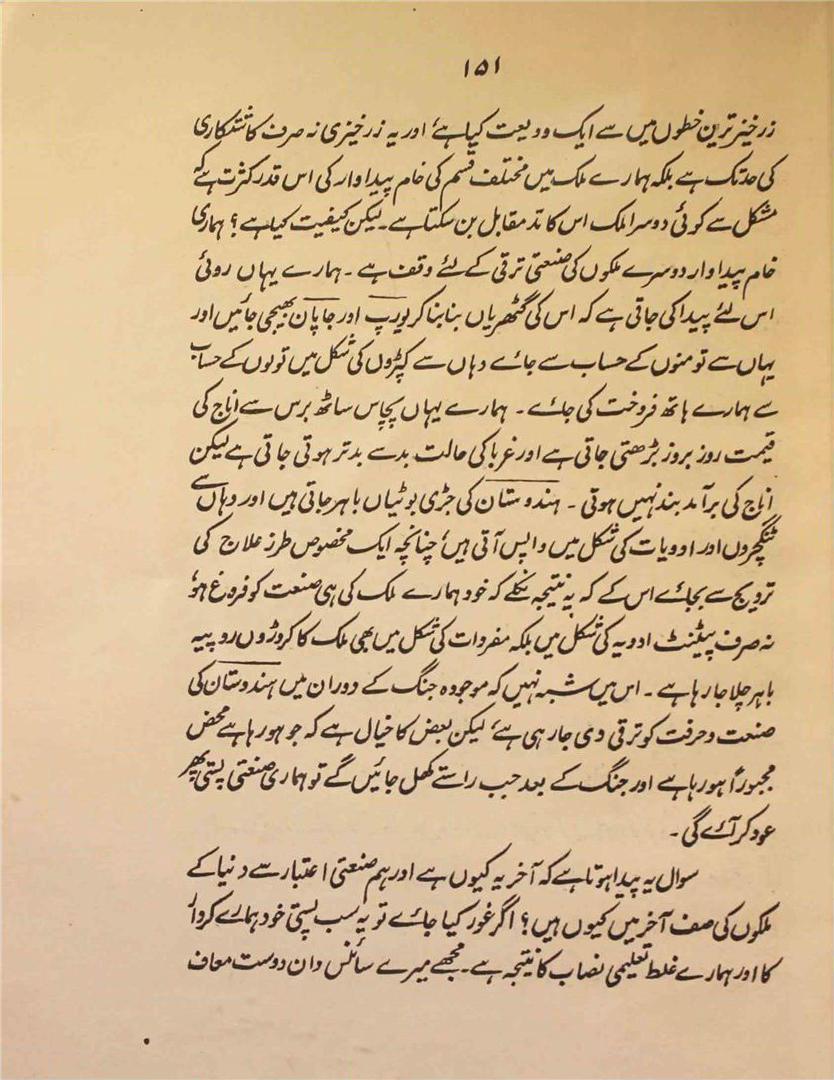 ۱۵۱
زرخیز ترین خطوں میں سے ایک ودیعت کیا ہے اور یہ زرخیزی نہ صرف کاشتکاری
کی حد تک ہے بلکہ ہمارے ملک میں مختلف قسم کی خام پیداوار کی اس قدر کثرت ہے کہ
مشکل سے کوئی دوسرا ملک اس کا مد مقابل بن سکتا ہے۔ لیکن کیفیت کیا ہے؟ ہماری
خام پیداوار دوسرے ملکوں کی صنعتی ترقی کے لئے وقف ہے۔ ہمارے یہاں روئی
اس لئے پیدا کی جاتی ہے کہ اس کی گٹھریاں بنا بنا کر یورپ اور جاپان بھیجی جائیں اور
یہاں سے تو منوں کے حساب سے جائے وہاں سے کپڑوں کی شکل میں تولوں کے حساب
سے ہمارے ہاتھ فروخت کی جائے۔ ہمارے یہاں پچاس ساٹھ برس سے اناج کی
قیمت روز بروز بڑھتی جاتی ہے اور غربا کی حالت بد سے بدتر ہوتی جاتی ہے لیکن
اناج کی برآمد بند نہیں ہوتی۔ ہندوستان کی جڑی بوٹیاں باہر جاتی ہیں اور وہاں سے
ٹنکچروں اور ادویات کی شکل میں واپس آتی ہیں، چنانچہ ایک مخصوص طرز علاج کی
ترویج سے بجائے اس کے کہ یہ نتیجہ نکلے کہ خود ہمارے ملک کی ہی صنعت کو فروغ ہو،
نہ صرف پیٹنٹ ادویہ کی شکل میں بلکہ مفردات کی شکل میں بھی ملک کا کروڑوں روپیہ
باہر چلا جا رہا ہے۔ اس میں شبہ نہیں کہ موجودہ جنگ کے دوران میں ہندوستان کی
صنعت و حرفت کو ترقی دی جا رہی ہے، لیکن بعض کا خیال ہے کہ جو ہو رہا ہے محض
مجبوراً ہو رہا ہے اور جنگ کے بعد جب راستے کھل جائیں گے تو ہماری صنعتی پستی پھر
عود کر آئے گی۔
سوال یہ پیدا ہوتا ہے کہ آخر یہ کیوں ہے اور ہم صنعتی اعتبار سے دنیا کے
ملکوں کی صف آخر میں کیوں ہیں؟ اگر غور کیا جائے تو یہ سب پستی خود ہمارے کردار
کا اور ہمارے غلط تعلیمی نصاب کا نتیجہ ہے۔ مجھے میرے سائنس دان دوست معاف